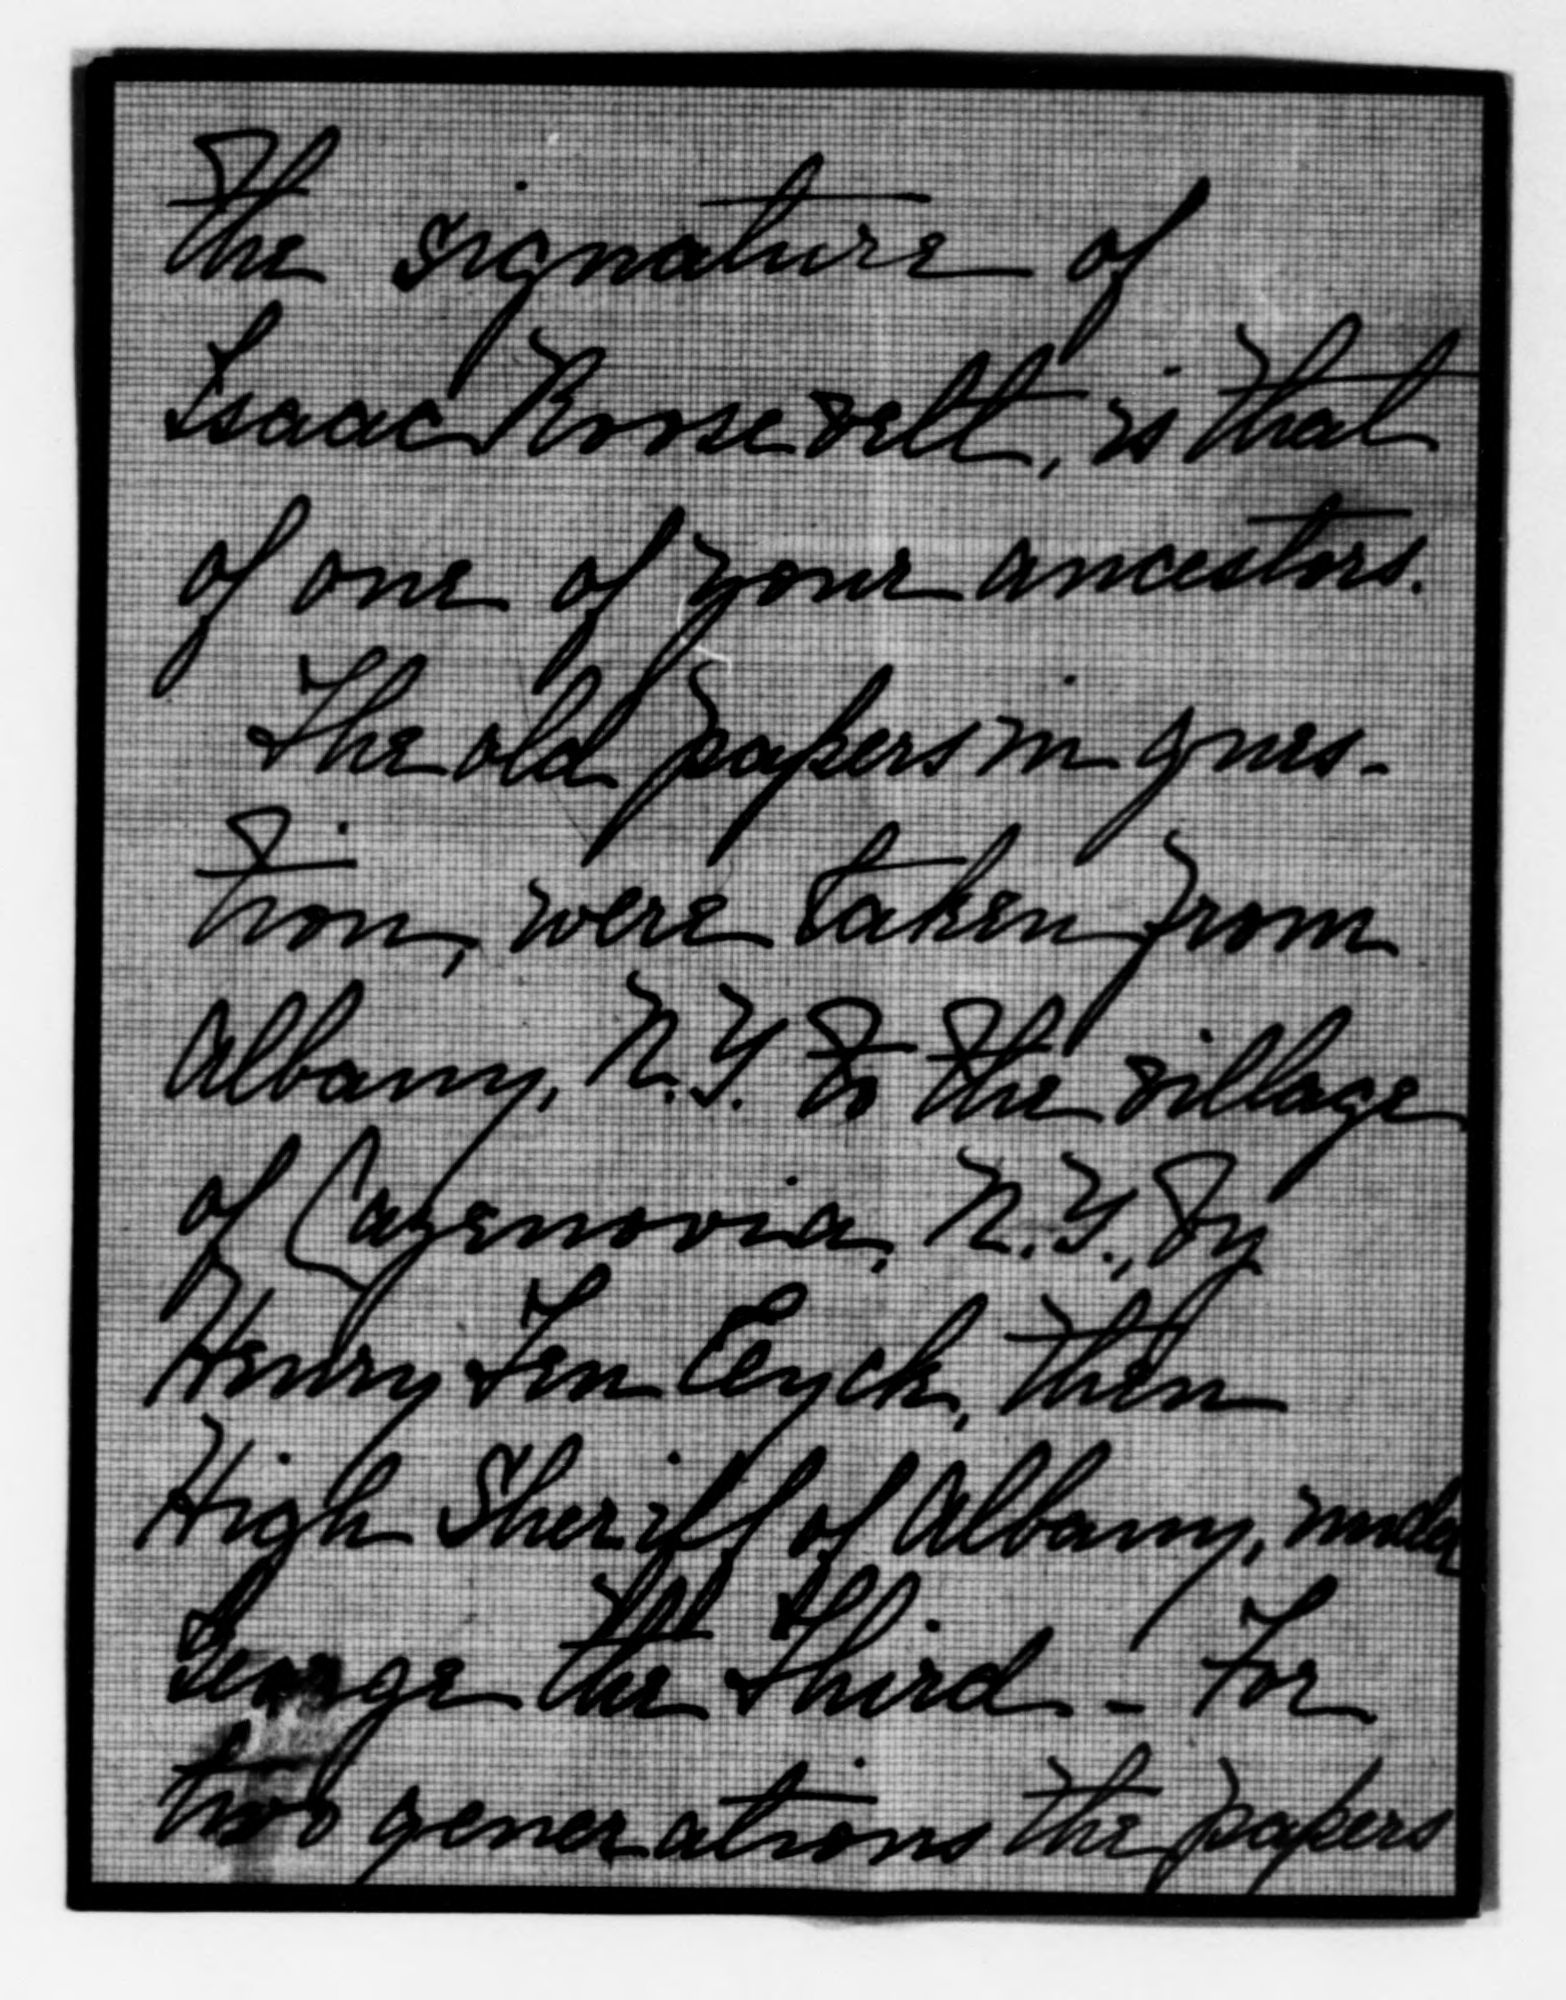 The signature of
Isaac Roosevelt, is that
of one of your ancestors.
The old papers in ques-
tion, were taken from
Albany, N.Y. to the village
of Cazenovia, N.Y., by
Henry Ten Eeyck, then
High Sheriff of Albany, under
George the Third - For
two generations the papers